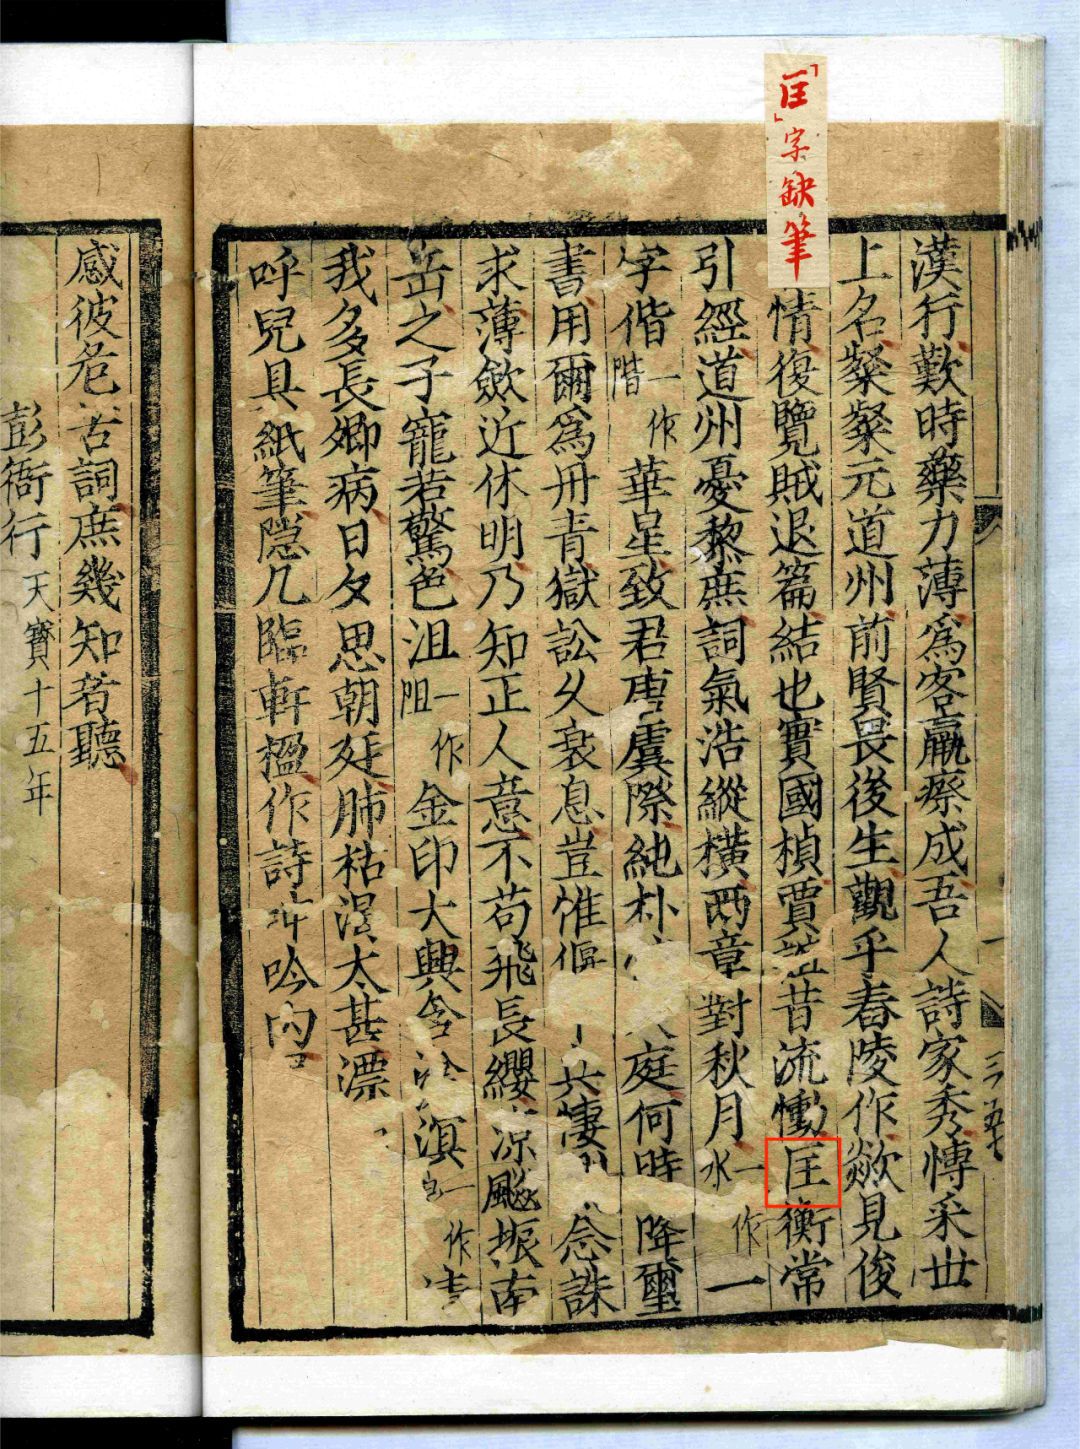 「匡」字缺筆
漢行歎時藥力薄爲客羸瘵成吾人詩家秀博采世
上名粲粲元道州前賢畏後生觀乎舂陵作欻見俊
情復覽賊退篇結也實國楨賈昔流慟匡衡常
引經道州憂黎庶詞氣浩縱橫兩章對秋月一作水一
字偕一作階華星致君唐虞際純朴庭何時降璽
書用爾爲丹青獄訟久衰息豈惟偃共悽念誅
求薄斂近休明乃知正人意不苟飛長纓涼飈振南
岳之子寵若驚色沮一作阻金印大興含溟一作清
我多長卿病日夕思朝廷肺枯渴太甚漂
呼兒具紙筆隱几臨軒楹作詩吟內
感彼危苦詞庶幾知者聽
彭衙行天寶十五年